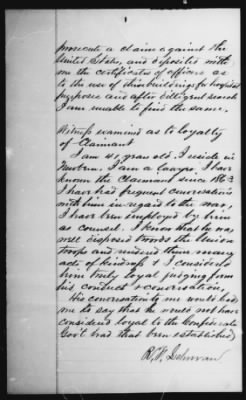 prosecute a claim against the
United States, and deposited with
me the certificates of officers as
to the use of their buildings for hospital
purposes and after diligent search
I am unable to find the same.
Witness examined as to loyalty
of Claimant
I am 41 years old. I reside in
Newbern. I am a lawyer. I have
known the Claimant since 1863
I have had frequent conversations
with him in regard to the war,
I have been employed by him
as counsel. I know that he was
well disposed towards the Union
troops and rendered them many
acts of kindness & I considered
him truly loyal judging from
his conduct & conversation,
His conversation to me would lead
me to say that he would not have
considered loyal to the Confederate
Gov't had that been established